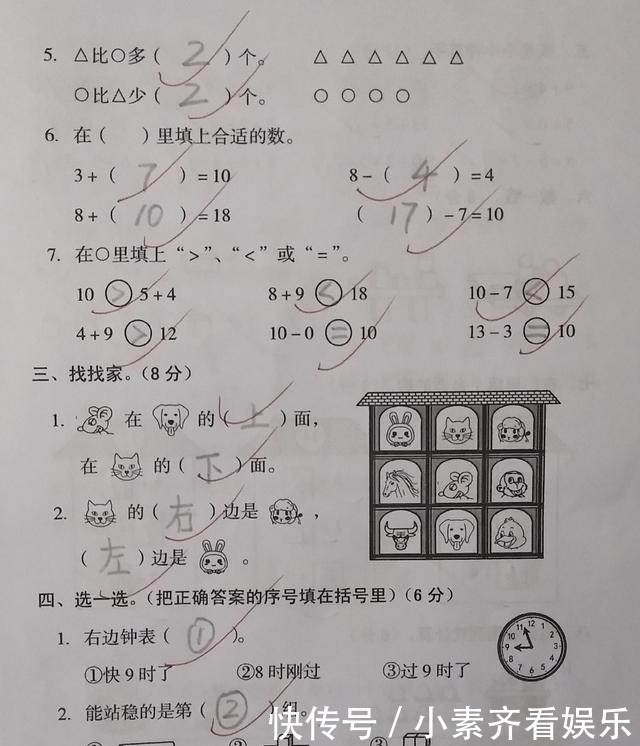 5. △比○多( 2 )个。 △ △ △ △ △ △
○比△少( 2 )个。 ○ ○ ○ ○
6. 在( )里填上合适的数。
3+( 7 )=10 8-( 4 )=4
8+( 10 )=18 ( 17 )-7=10
7. 在○里填上“>”、“<”或“=”。
10 > 5+4 8+9 < 18 10-7 < 15
4+9 > 12 10-0 = 10 13-3 = 10
三、找找家。(8分)
1. 在 的( 上 )面,
在 的( 下 )面。
2. 的( 右 )边是 ,
( 左 )边是 。
四、选一选。(把正确答案的序号填在括号里)(6分)
1. 右边钟表( ① )。
①快9时了 ②8时刚过 ③过9时了
11 12 1 10 2 9 3 8 4 7 6 5
2. 能站稳的是第( ② )组。
快传号/小素齐看娱乐